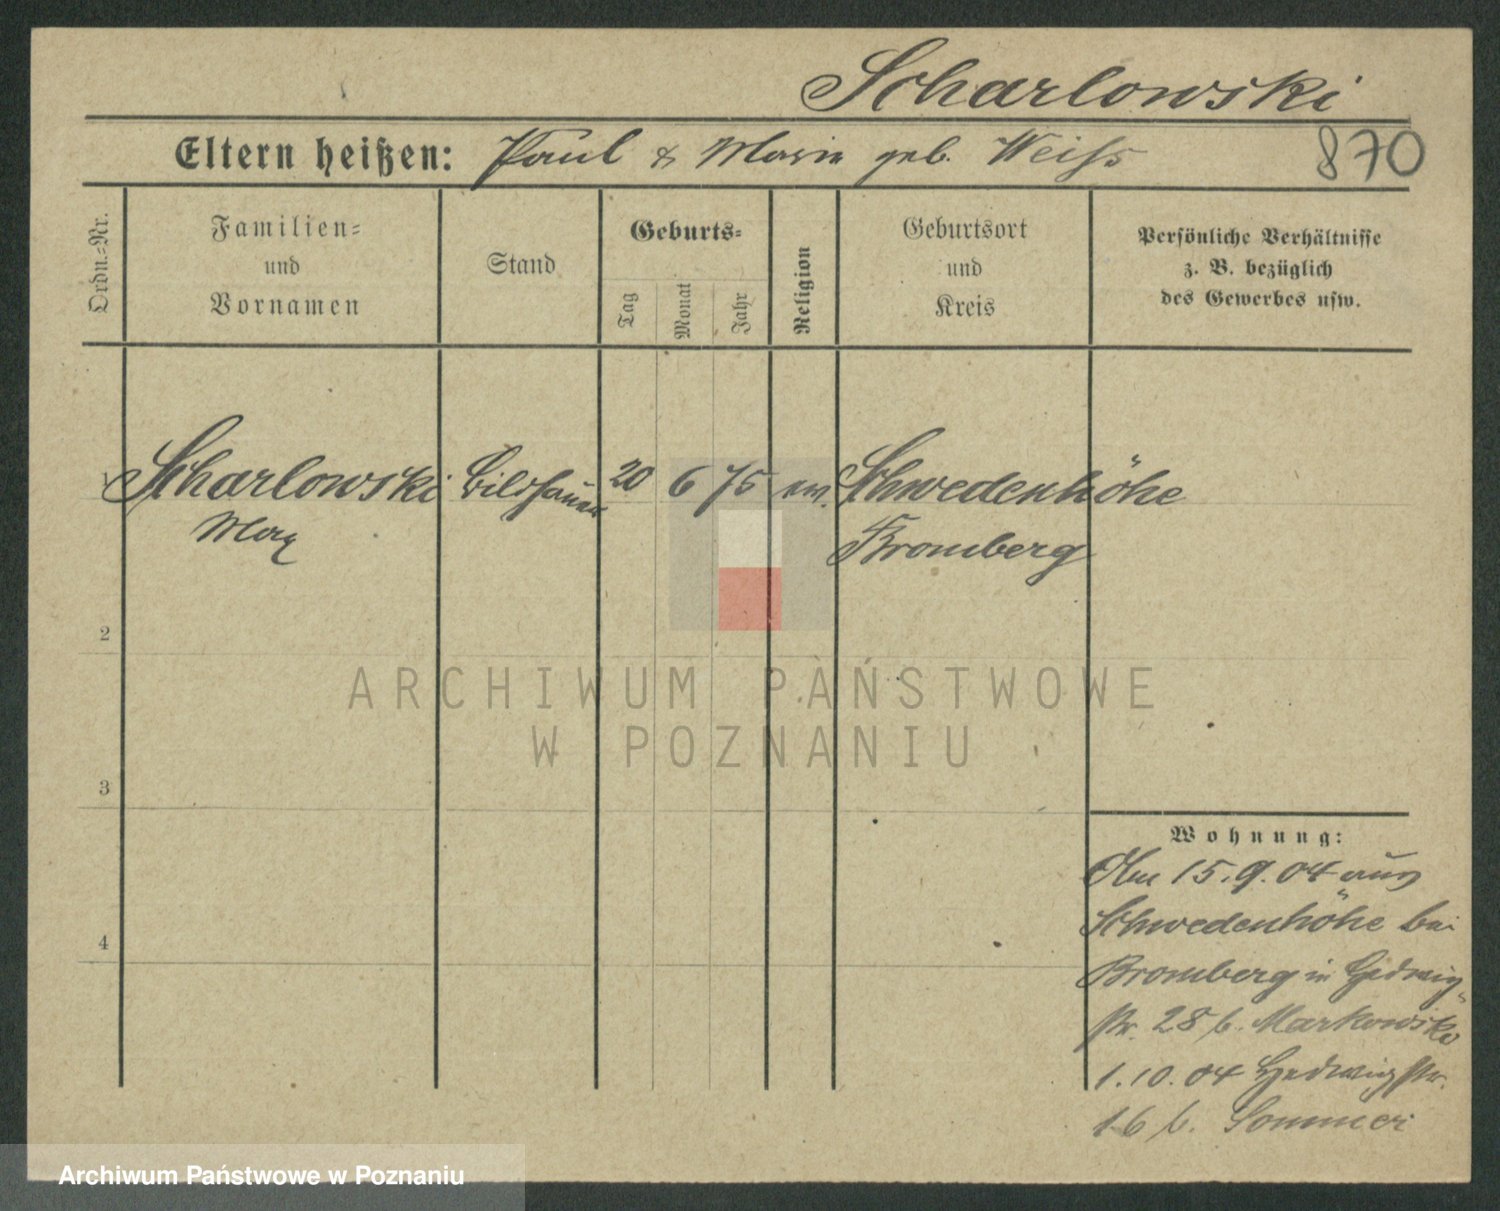 Scharlowski
Eltern heißen: Paul & Marie geb. Weiss
870
Ordn.-Nr.
Familien-
und
Vornamen
Stand
Geburts-
Tag
Monat
Jahr
Religion
Geburtsort
und
Kreis
Persönliche Verhältnisse
z. B. bezüglich
des Gewerbes usw.
1 Scharlowski Bildhauer 20 6 75 ev. Schwedenhöhe
Max Bromberg
2
3
4
Wohnung:
Am 15.9.04 aus
Schwedenhöhe bei
Bromberg in Hedwig-
str. 28 b. Markowski
1.10.04 Hedwigstr.
16 b. Sommer
ARCHIWUM PAŃSTWOWE
W POZNANIU
Archiwum Państwowe w Poznaniu